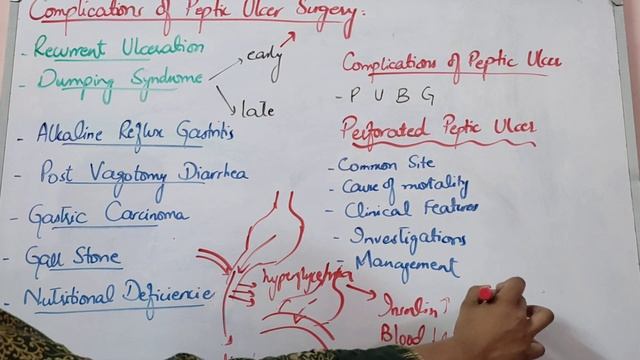 Complications of Peptic Ulcer Surgery:
- Recurrent Ulceration
- Dumping Syndrome
early
late
- Alkaline Reflux Gastritis
- Post Vagotomy Diarrhea
- Gastric Carcinoma
- Gall Stone
- Nutritional Deficiencie
Complications of Peptic Ulcer
- P U B G
Perforated Peptic Ulcer
- Common Site
- Cause of mortality
- Clinical Features
- Investigations
- Management
Insulin ↑
Blood